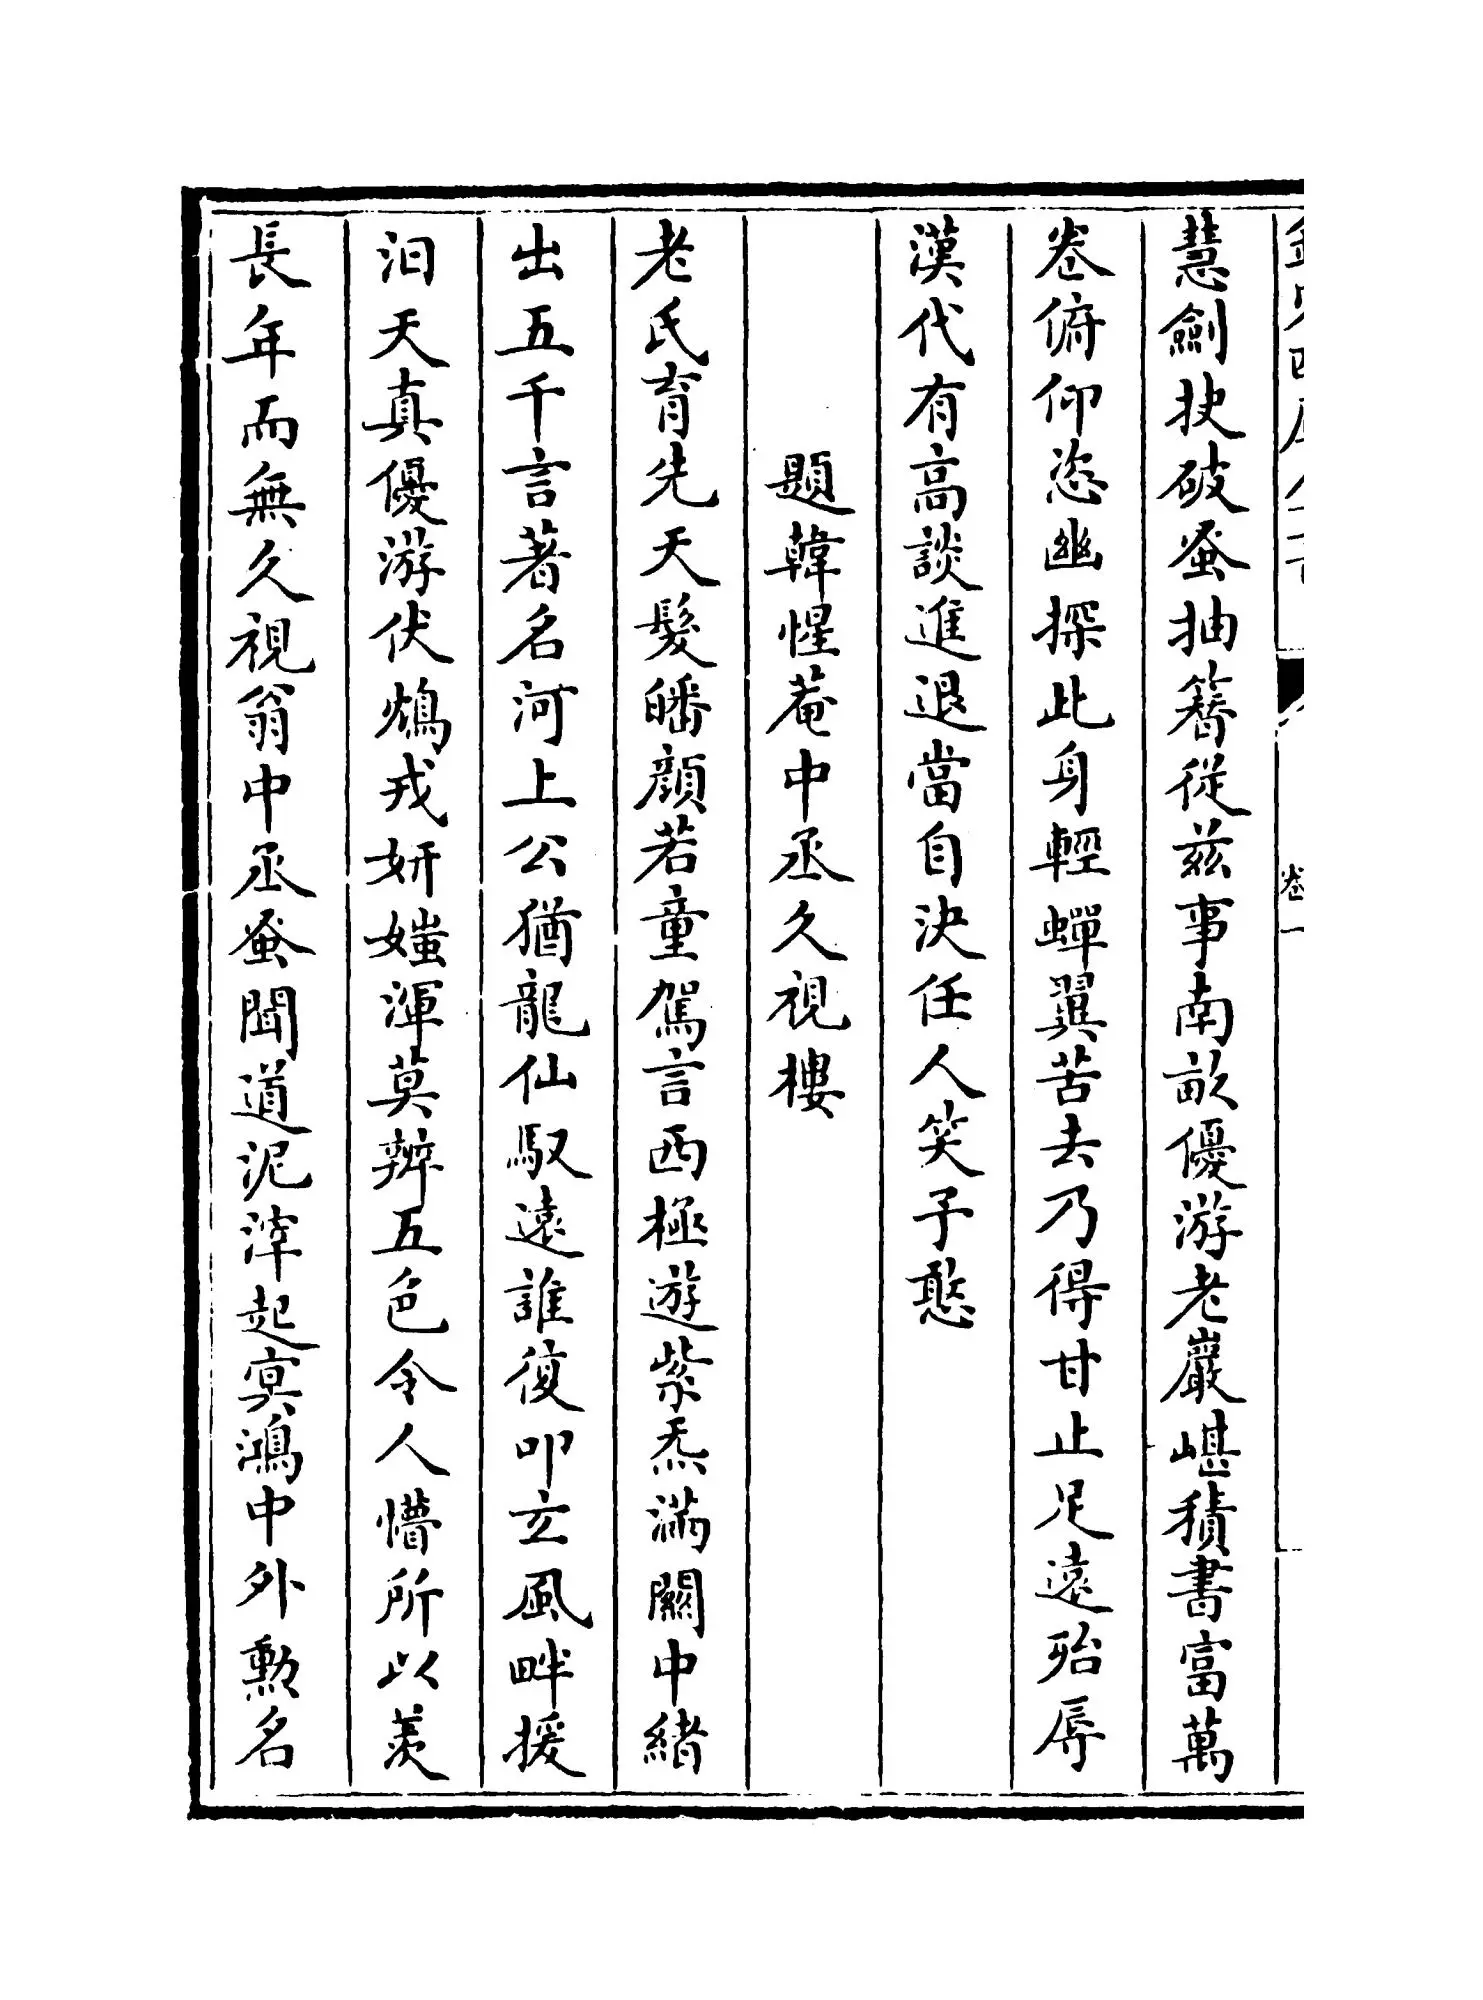 卷一
慧劍抉破蚤抽簪從兹事南畝優游老巖嵁積書富萬
卷俯仰恣幽探此身輕蟬翼苦去乃得甘止足遠殆辱
漢代有高談進退當自決任人笑子憨
題韓惺菴中丞久視樓
老氏育先天髮皤顔若童駕言西極遊紫炁滿關中緒
出五千言著名河上公猶龍仙馭遠誰復叩玄風畔援
汩天真優游伏鴆戎妍媸渾莫辨五色令人懵所以羨
長年而無久視翁中丞蚤聞道泥滓起冥鴻中外勲名